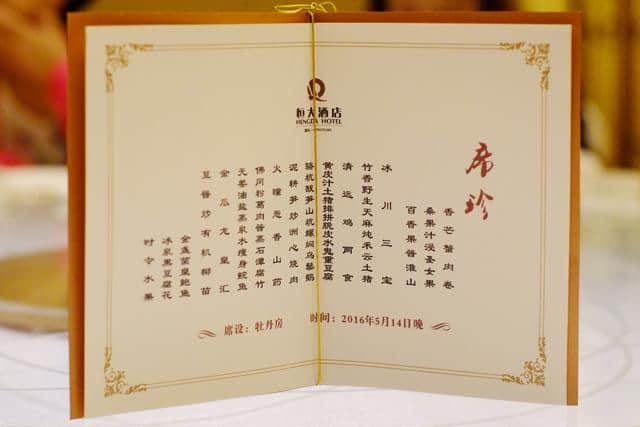 恒大酒店
HENGDA HOTEL
席珍
香芒蟹肉卷
桑果汁浸圣女果
百香果酱淮山
冰川三宝
竹香野生天麻炖禾云土猪
清远鸡两食
黄皮汁土猪排拼脱皮水鬼重豆腐
骆杭靓笋山坑螺焖乌鬃鹅
泥耕笋炒洲心烧肉
火瞳葱香山药
佛冈粉葛肉酱蒸石潭腐竹
无菜油盐蒸泉水瘦身鲩鱼
金瓜龙皇汇
豆酱炒有机椰苗
金盏菌皇鲍鱼
冰泉黑豆腐花
时令水果
席设：牡丹房
时间：2016年5月14日晚